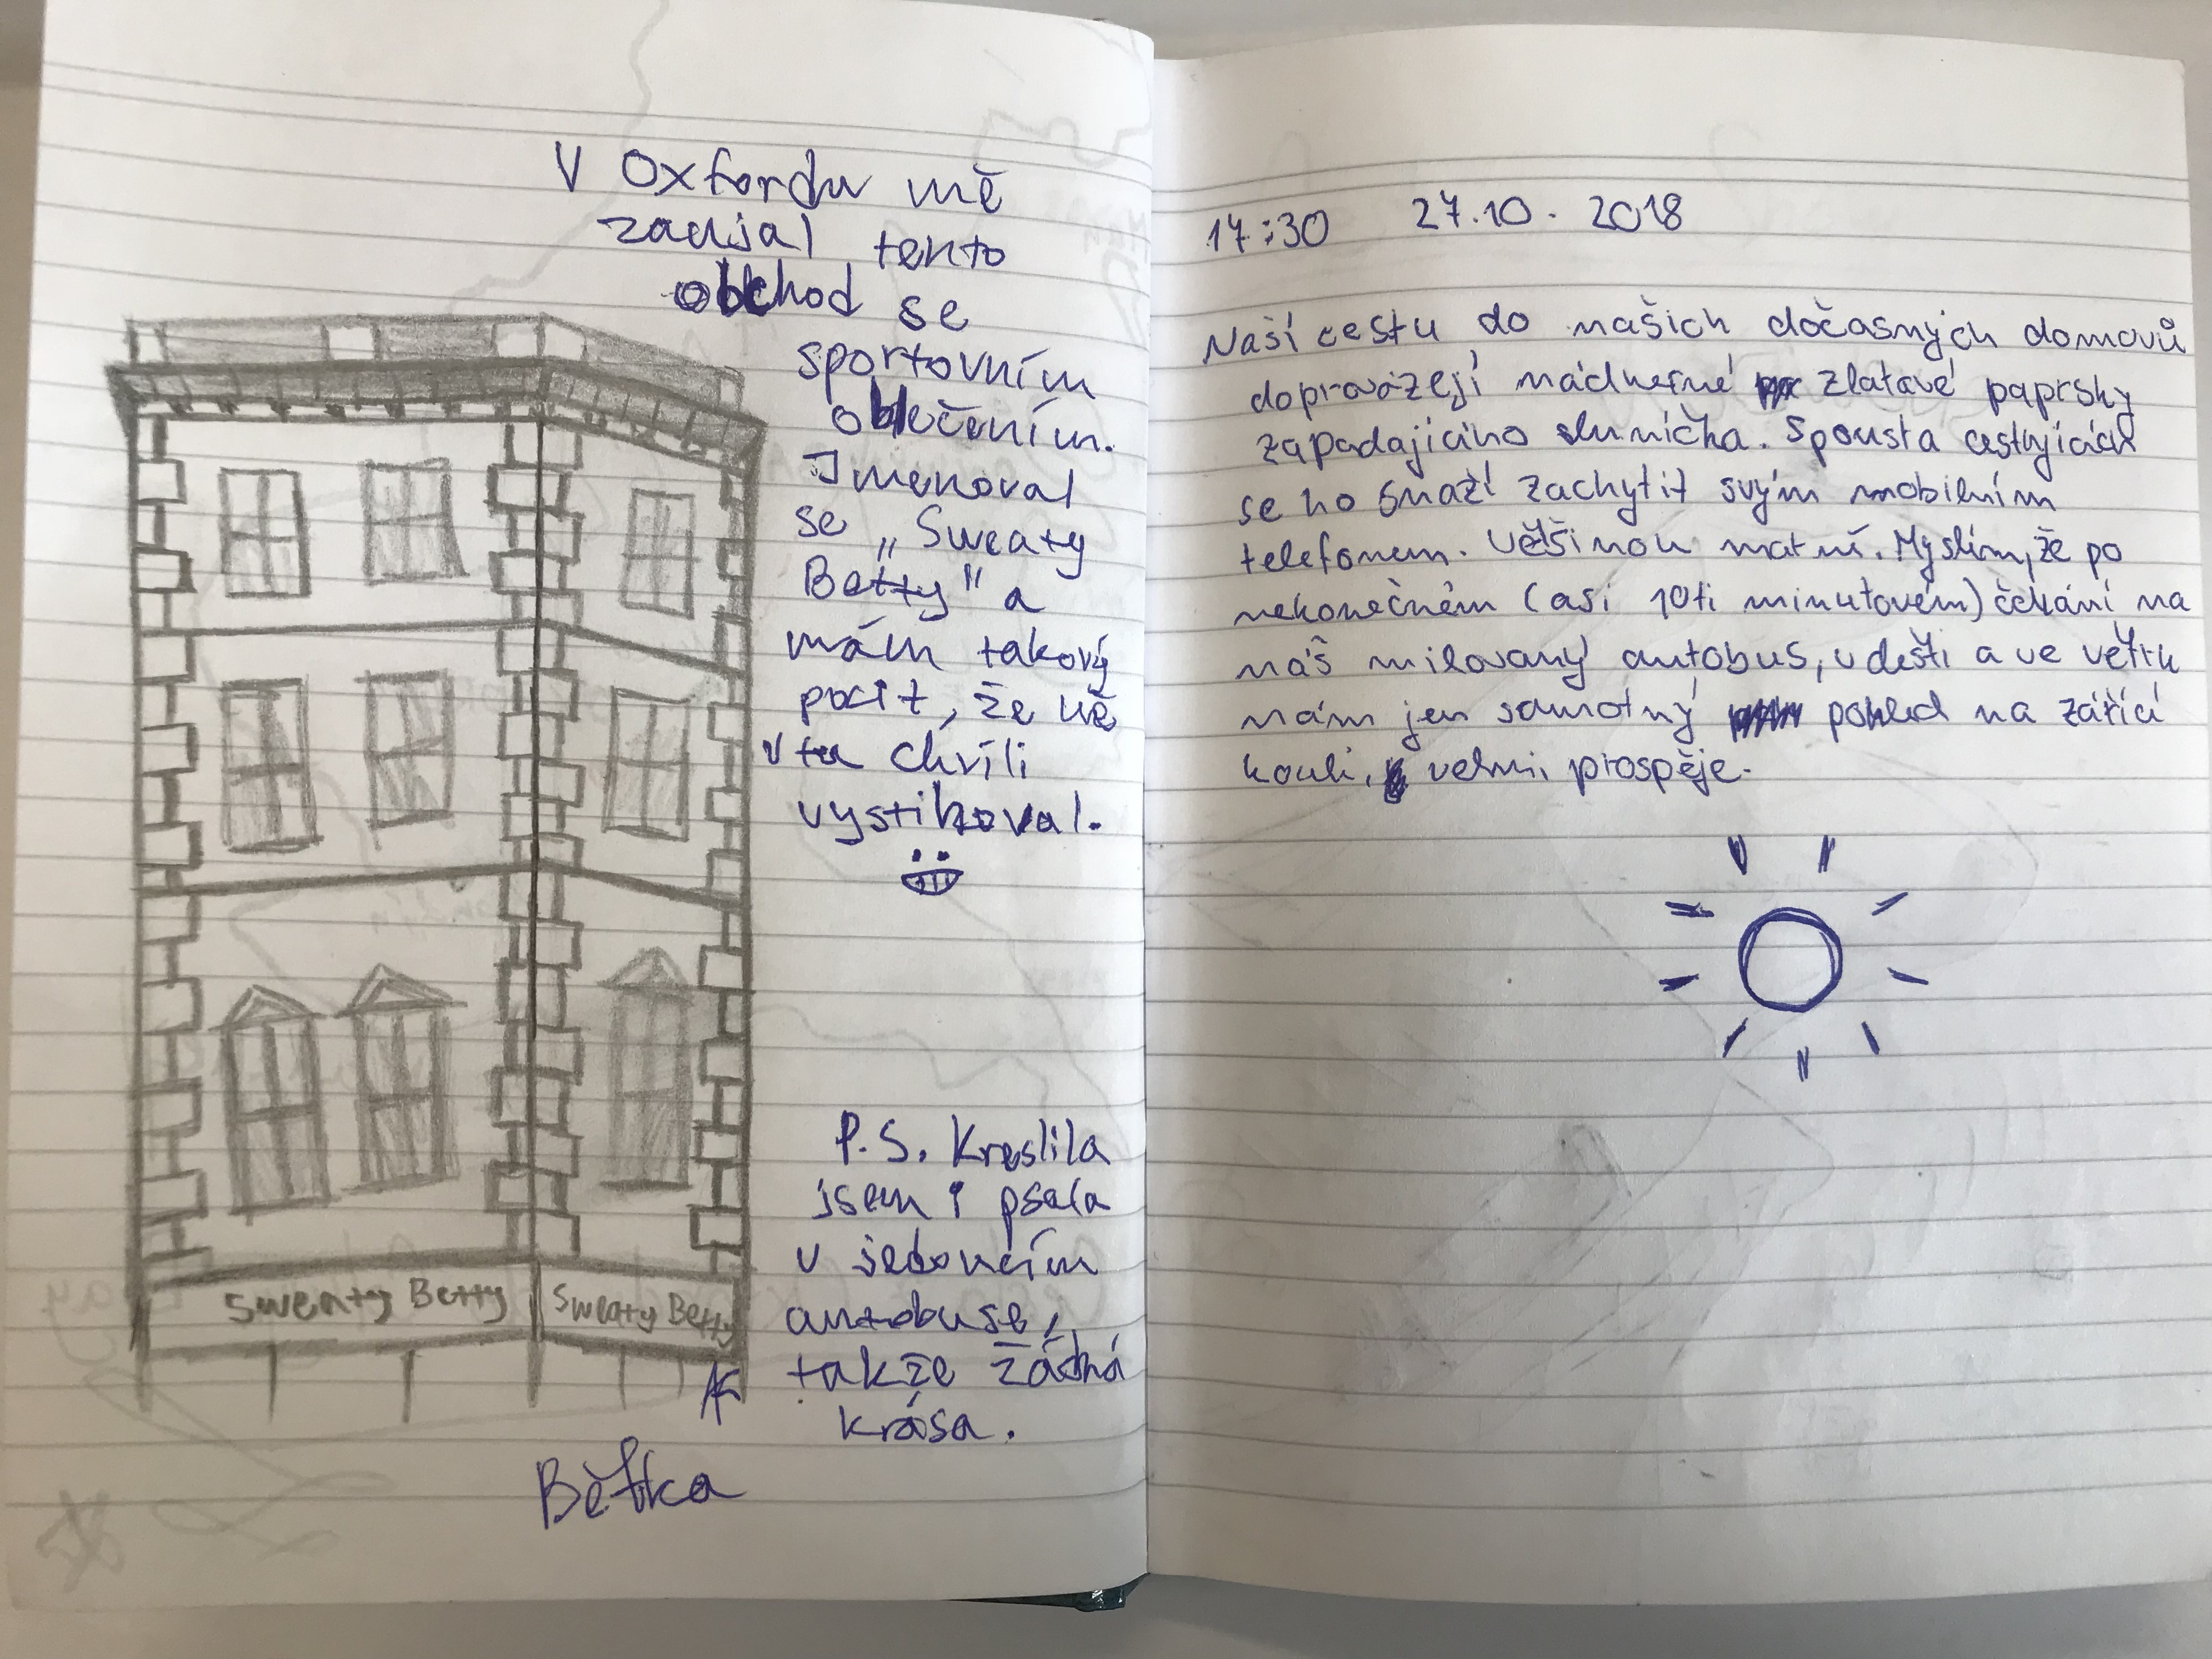 V Oxfordu mě
zaujal tento
obchod se
sportovním
oblečením.
Jmenoval
se „Sweaty
Betty" a
mám takový
pocit, že mě
v tu chvíli
vystihoval.
P.S. Kreslila
jsem i psala
v jedoucím
autobuse,
takže žádná
krása.
Sweaty Betty
Sweaty Betty
Bětka
17:30 27.10. 2018
Naší cestu do našich dočasných domovů
doprovázejí nádherné zlatavé paprsky
zapadajícího sluníčka. Spousta cestujících
se ho snaží zachytit svým mobilním
telefonem. Většinou marně. Myslím, že po
nekonečném (asi 10ti minutovém) čekání na
náš milovaný autobus, v dešti a ve větru
nám jen samotný pohled na zářící
kouli, velmi prospěje.